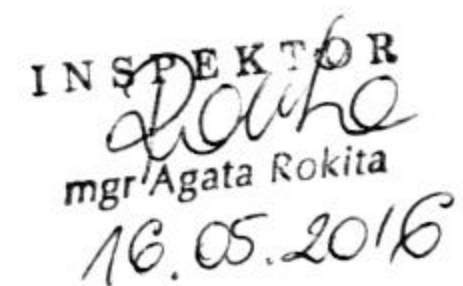 INSPEKTOR
Rokita
mgr Agata Rokita
16.05.2016